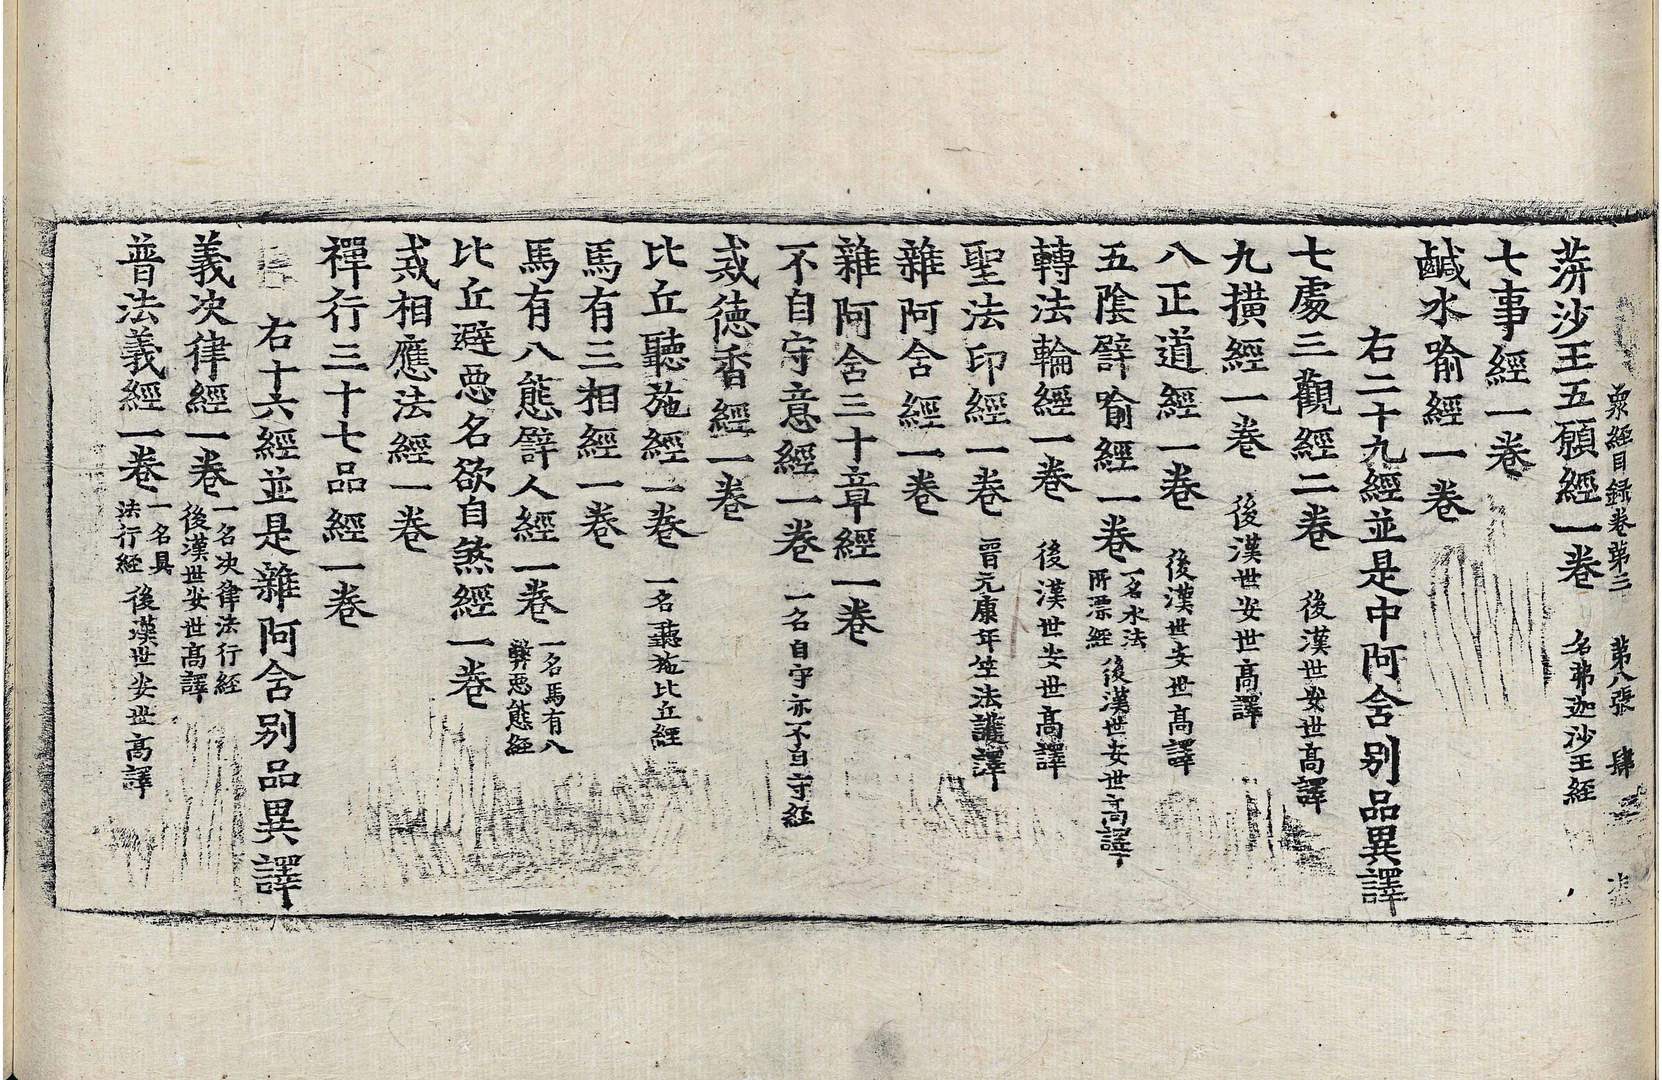 衆經目録卷第三 第八張 肆
蓱沙王五願經一卷 名弗迦沙王經
七事經一卷
鹹水喻經一卷
右二十九經並是中阿含别品異譯
七處三觀經二卷 後漢世安世高譯
九撗經一卷 後漢世安世高譯
八正道經一卷 後漢世安世高譯
五隂譬喻經一卷 一名水法所漂經 後漢世安世高譯
轉法輪經一卷 後漢世安世高譯
聖法印經一卷 晉元康年竺法護譯
雜阿含經一卷
雜阿含三十章經一卷
不自守意經一卷 一名自守亦不自守經
戒徳香經一卷
比丘聽施經一卷 一名聽施比丘經
馬有三相經一卷
馬有八態譬人經一卷 一名馬有八弊惡態經
比丘避惡名欲自煞經一卷
戒相應法經一卷
禪行三十七品經一卷
右十六經並是雜阿含别品異譯
義决律經一卷 一名决律法行經 後漢世安世高譯
普法義經一卷 一名具法行經 後漢世安世高譯